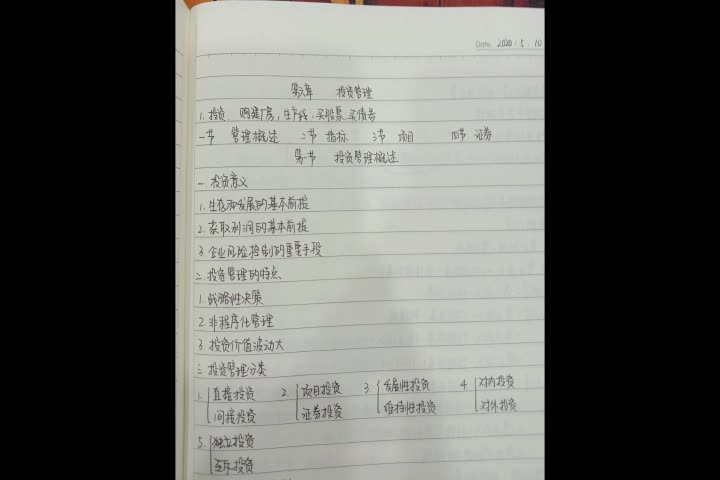 Date. 2020.5.10
第六章 投资管理
1. 投资 购建厂房, 生产线, 买股票, 买债券
一节 管理概述 二节 指标 三节 项目 四节 证券
第一节 投资管理概述
一. 投资意义
1. 生存和发展的基本前提
2. 获取利润的基本前提
3. 企业风险控制的重要手段
二. 投资管理的特点
1. 战略性决策
2. 非程序化管理
3. 投资价值波动大
三. 投资管理分类
1. 直接投资 2. 项目投资 3. 发展性投资 4. 对内投资
间接投资 证券投资 维持性投资 对外投资
5. 独立投资
互斥投资